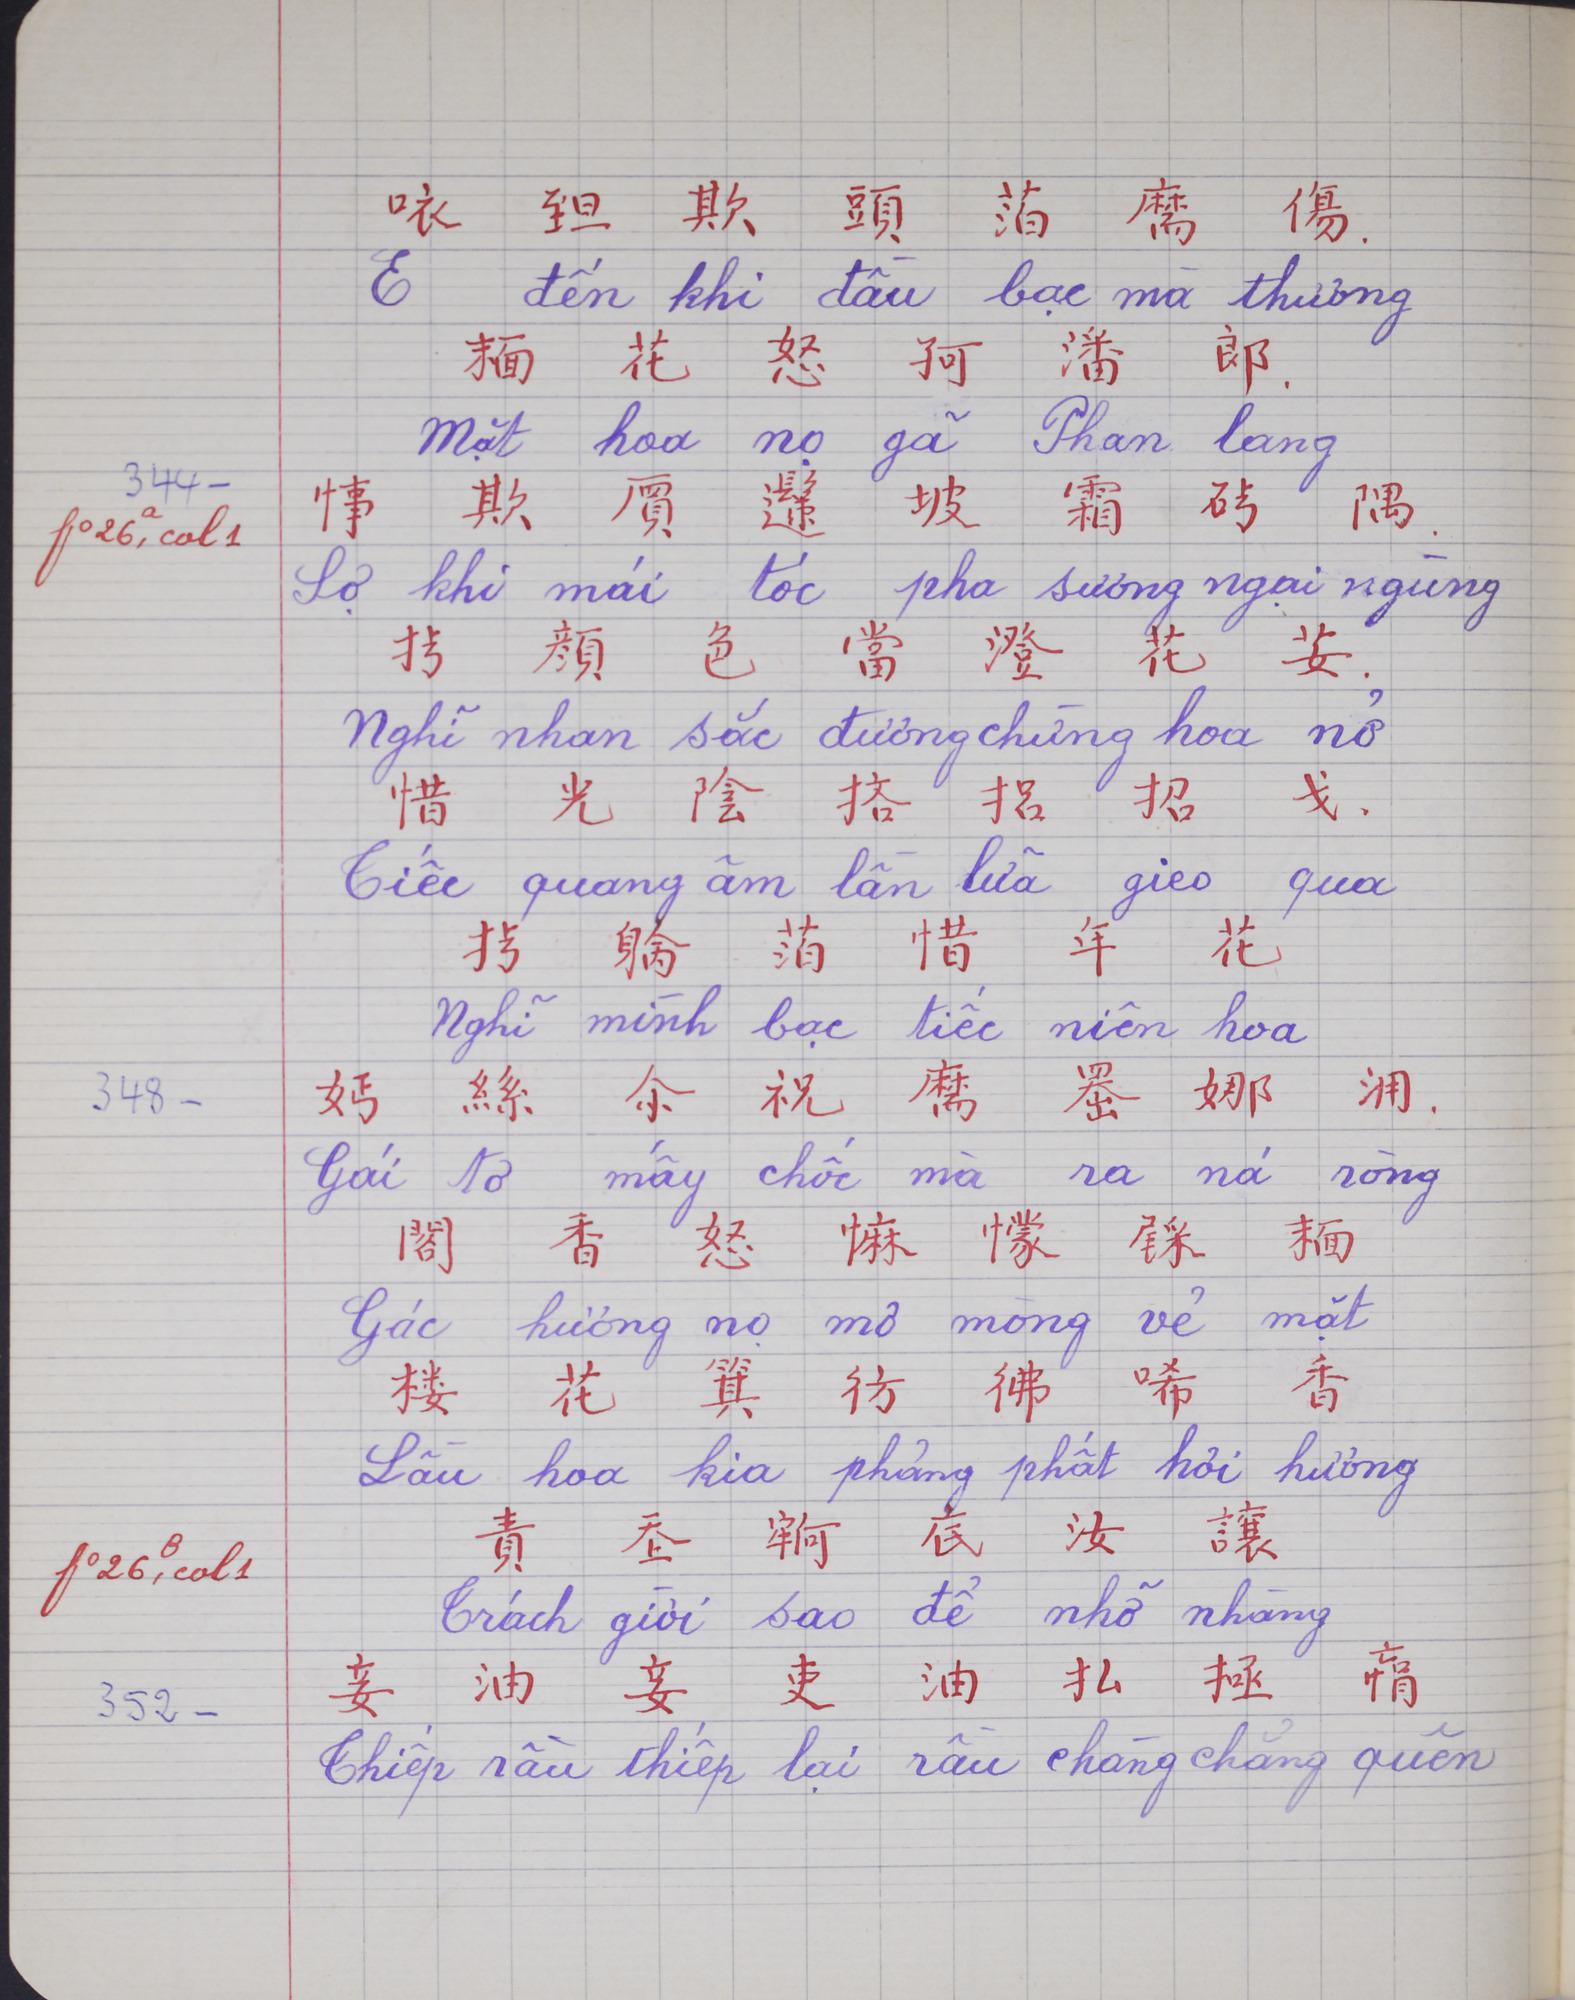 㕆 𦤾旦 欺 頭 萡 𦓡 傷.
E đến khi đầu bạc mà thương
𩈘 花 怒 哿 潘 郎.
Mặt hoa nọ gã Phan lang
344-
fº26,ª col1
𢚁 欺 𠪸 坡 霜 砖 隅.
Sợ khi mái tóc pha sương ngại ngùng
𢪀 顔 色 當 澄 花 芺.
Nghĩ nhan sắc đương chừng hoa nở
惜 光 陰 𢭝 捛 招 戈.
Tiếc quang âm lần lữa gieo qua
𢪀 𨉟 萡 惜 年 花
Nghĩ mình bạc tiếc niên hoa
348-
媽 絲 尒 祝 𦓡 𠚢 娜 𣳔.
Gái tơ mấy chốc mà ra ná ròng
閣 香 怒 𢠩 懞 𨤔 𩈘
Gác hương nọ mơ mòng vẻ mặt
楼 花 箕 彷 彿 唏 香
Lầu hoa kia phảng phất hơi hương
fº26,ᴮ col1
責 𡗶 牢 底 汝 讓
Trách giời sao để nhỡ nhàng
352-
妾 油 妾 吏 油 払 拯 悁
Thiếp rầu thiếp lại rầu chàng chẳng quên